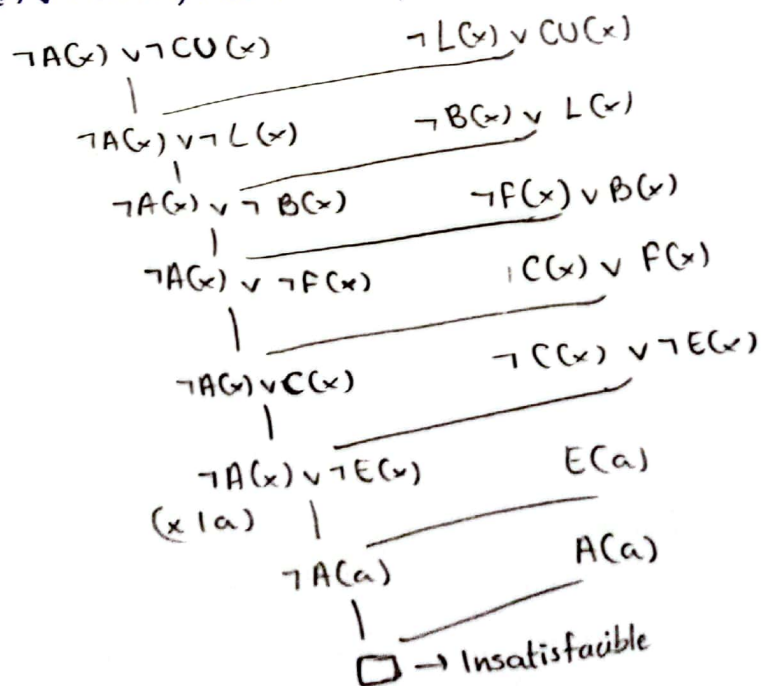 ¬A(x) ∨ ¬CU(x) ¬L(x) ∨ CU(x)
¬A(x) ∨ ¬L(x) ¬B(x) ∨ L(x)
¬A(x) ∨ ¬B(x) ¬F(x) ∨ B(x)
¬A(x) ∨ ¬F(x) C(x) ∨ F(x)
¬A(x) ∨ C(x) ¬C(x) ∨ ¬E(x)
¬A(x) ∨ ¬E(x) E(a)
(x|a)
¬A(a) A(a)
□ → Insatisfacible